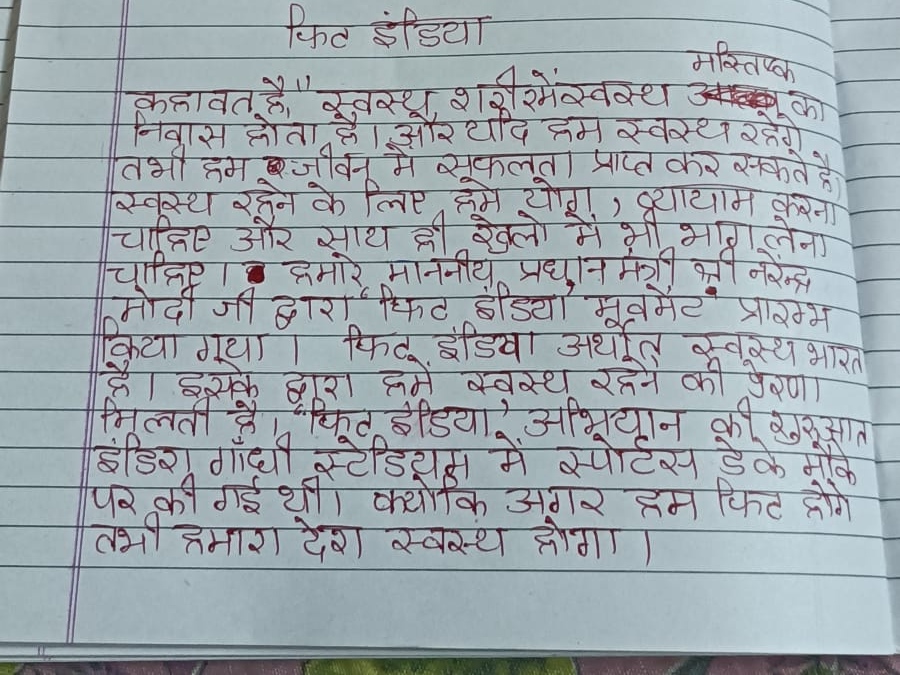 फिट इंडिया
मस्तिष्क
कहावत है," स्वस्थ शरीर में स्वस्थ का
निवास होता है। और यदि हम स्वस्थ रहेंगे
तभी हम जीवन में सफलता प्राप्त कर सकते है,
स्वस्थ रहने के लिए हमे योग, व्यायाम करना
चाहिए और साथ ही खेलो में भी भाग लेना
चाहिए। हमारे माननीय प्रधान मंत्री श्री नरेन्द्र
मोदी जी द्वारा 'फिट इंडिया' मूवमेंट प्रारम्भ
किया गया। फिट इंडिया अर्थात् स्वस्थ भारत
है। इसके द्वारा हमें स्वस्थ रहने की प्रेरणा
मिलती है। 'फिट इंडिया' अभियान की शुरुआत
इंडिरा गाँधी स्टेडियम में स्पोर्टस डे के मौके
पर की गई थी। क्योकि अगर हम फिट होंगे
तभी हमारा देश स्वस्थ होगा।